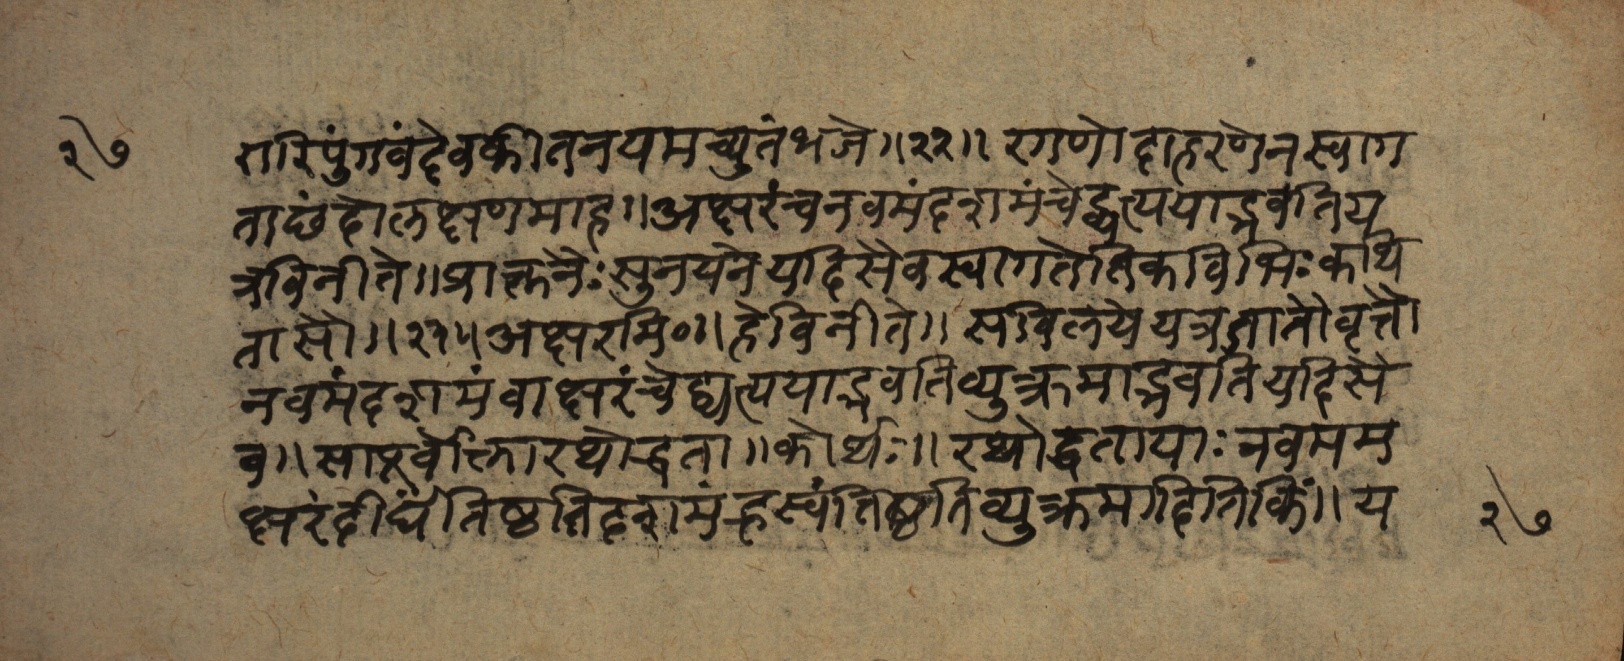 २७
गरिपुंगवंदेवकीतनयमच्युतंभजे॥२२॥ रगणोदाहरणेनस्वाग
ताछंदोलक्षणमाह॥अक्षरंचनवमंदशमंचेद्व्यत्ययाद्भवतिय
त्रविनीते॥प्राक्तनैः सुनयनेयदिसैवस्वागतेतिकविभिः कथि
तासौ॥२३॥अक्षरमि०॥हेविनीते॥ सविलयेयत्रजातौवृत्तौ
नवमंदशमंवाक्षरंचेद्व्यत्ययाद्भवतिव्युत्क्रमाद्भवतियदिसै
व॥साप्रूर्वोक्तारथोद्धता॥कोर्थः॥रथोद्धतायाः नवमम
क्षरंदीर्घंतिष्ठतिदशमंह्रस्वंतिष्ठतिव्युत्क्रमादितिकिं॥य
२७